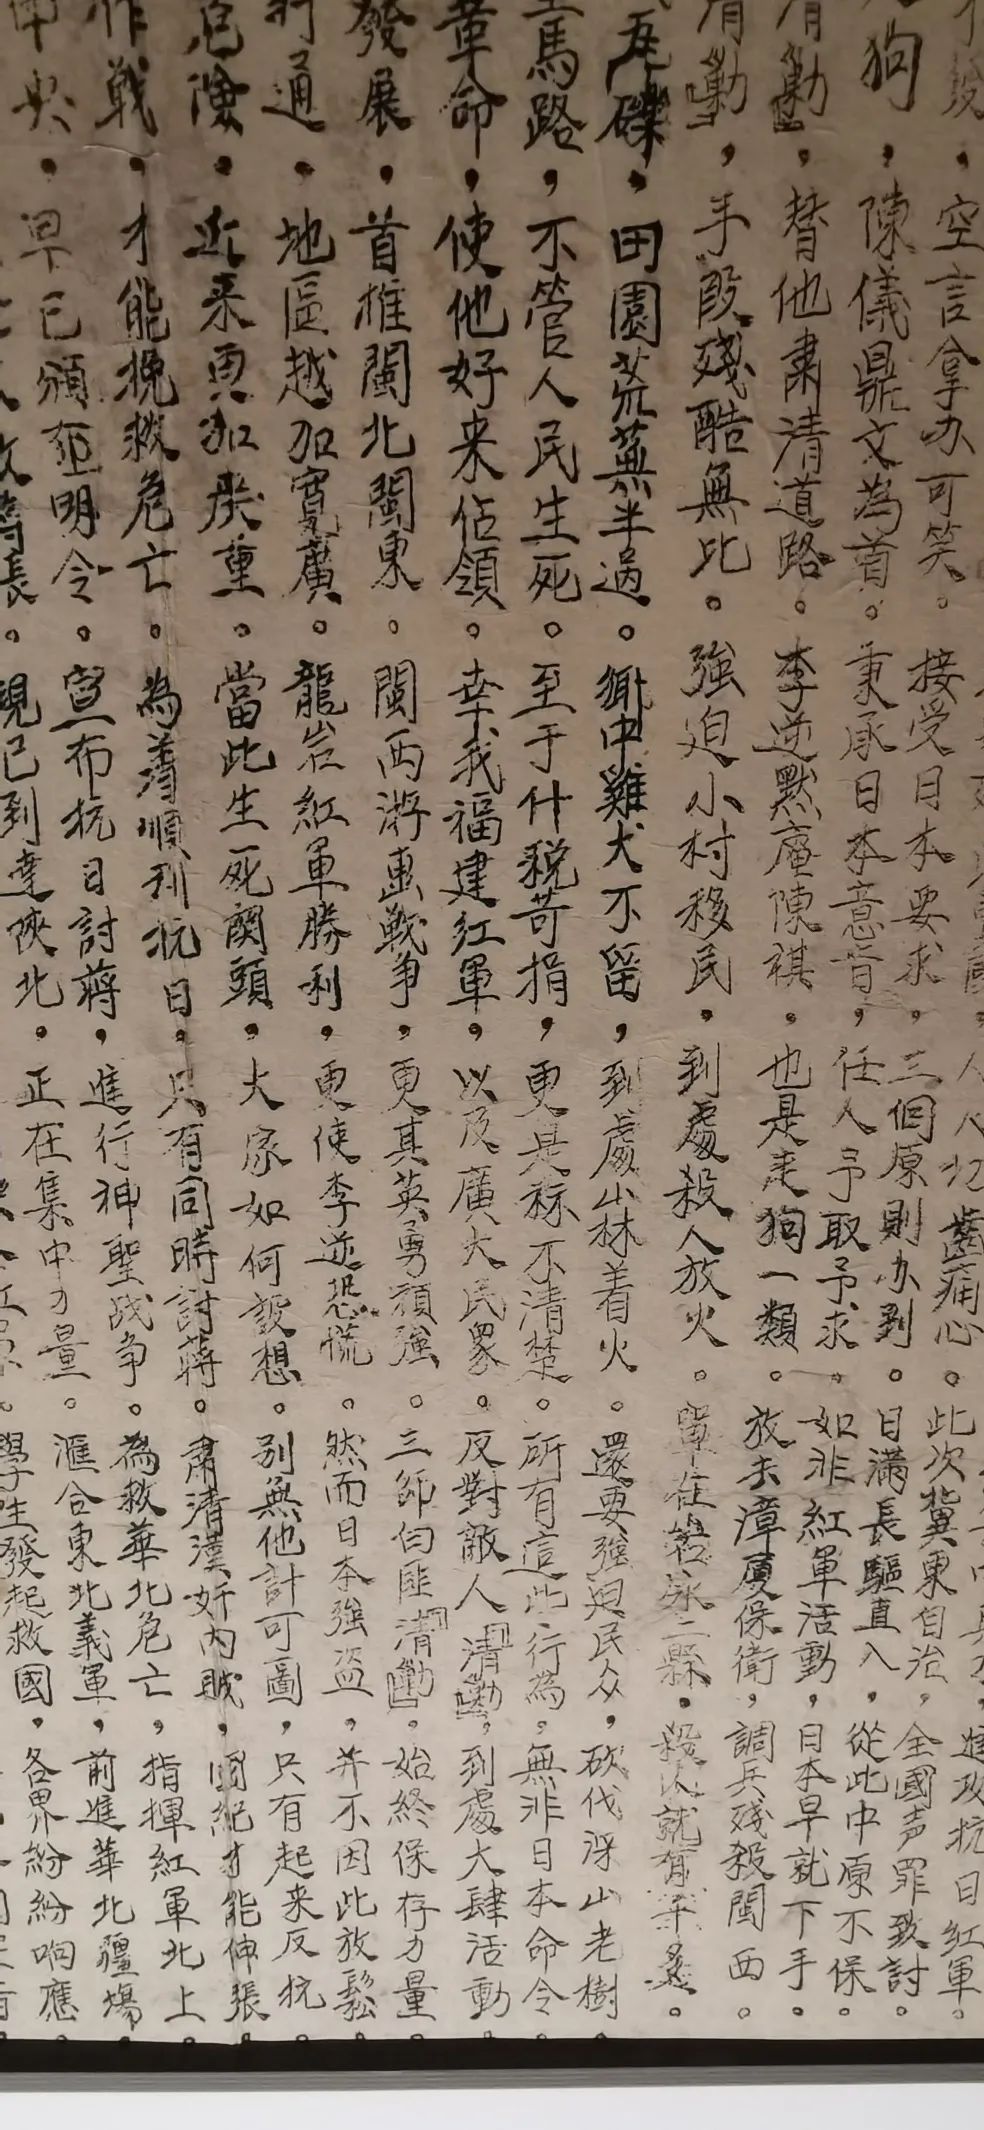 進攻抗日紅軍。
人人切齒痛心。此次冀東自治，全國声罪致討。
，空言拿办可笑。接受日本要求，三個原則办到。日滿長驅直入，從此中原不保。
狗，陳儀鼎文為首。秉承日本意旨，任人予取予求。如非紅軍活動，日本早就下手。
清勦」，替他肅清道路。李逆默庵陳祺，也是走狗一類。放去漳厦保衛，調兵殘殺閩西。
清勦」，手段殘酷無比。強迫小村移民，到處殺人放火。單在岩永二縣，殺人就有千多。
瓦礫，田園荒蕪半過。鄉中雞犬不留，到處山林着火。還要強迫民众，砍伐深山老樹。
馬路，不管人民生死。至于什税苛捐，更是綜不清楚。所有這些行為，無非日本命令。
革命，使他好来佔領。幸我福建红軍，以及廣大民眾。反對敵人「清勦」，到處大肆活動。
發展，首推閩北閩東。閩西游擊戰争，更其英勇頑強。三師白匪「清勦」，始終保存力量。
打通，地區越加寬廣。龍岩紅軍勝利，更使李逆恐慌。然而日本強盗，并不因此放鬆。
危險，近来更加嚴重。當此生死關頭，大家如何設想。別無他計可圖，只有起来反抗。
作戰，才能挽救危亡。為着順利抗日，只有同時討蔣。肅清漢奸内賊，國紀才能伸張。
中央，早已頒明令。宣布抗日討蔣，進行神聖战争。為救華北危亡，指揮紅軍北上。
長。現已到達陕北，正在集中力量。滙合東北義軍，前進華北疆場。
學生發起救國，各界紛紛响應。